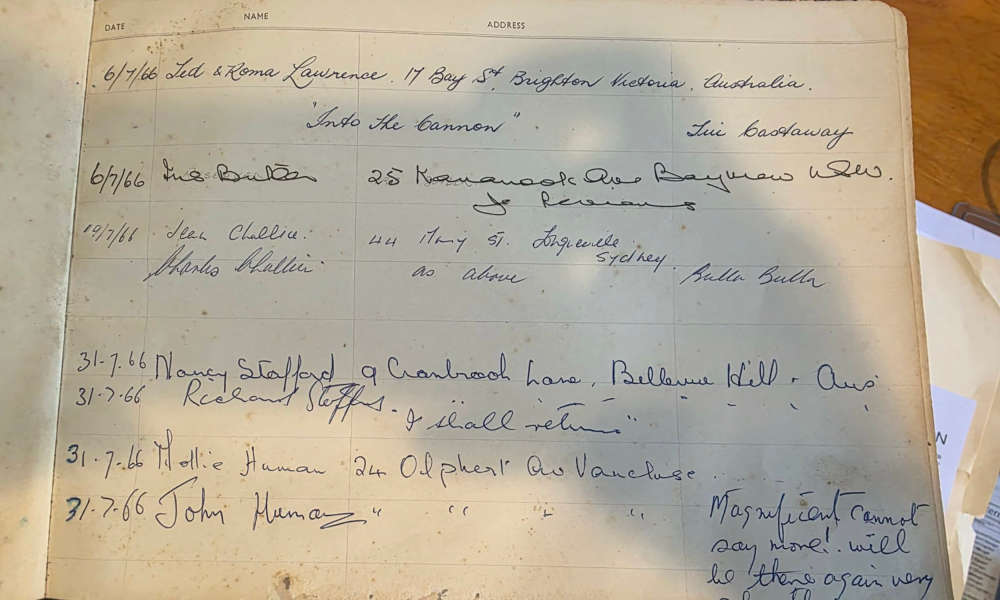 DATE NAME ADDRESS
6/7/66 Ted & Roma Lawrence. 17 Bay St. Brighton Victoria. Australia.
"Into the Cannon" Castaway
6/7/66 25 Ave Bayview NSW.
19/7/66 Jean Challice. 44 Mary St. Longueville
Sydney.
Charles Challice as above Bulla Bulla
31.7.66 Nancy Stafford 9 Cranbrook Lane, Bellevue Hill. Aus
31.7.66 Richard
I shall return"
31.7.66 Mollie Human 24 Olphert Av Vaucluse.
31.7.66 John Human " " " " Magnificent cannot
say more! will
be there again very